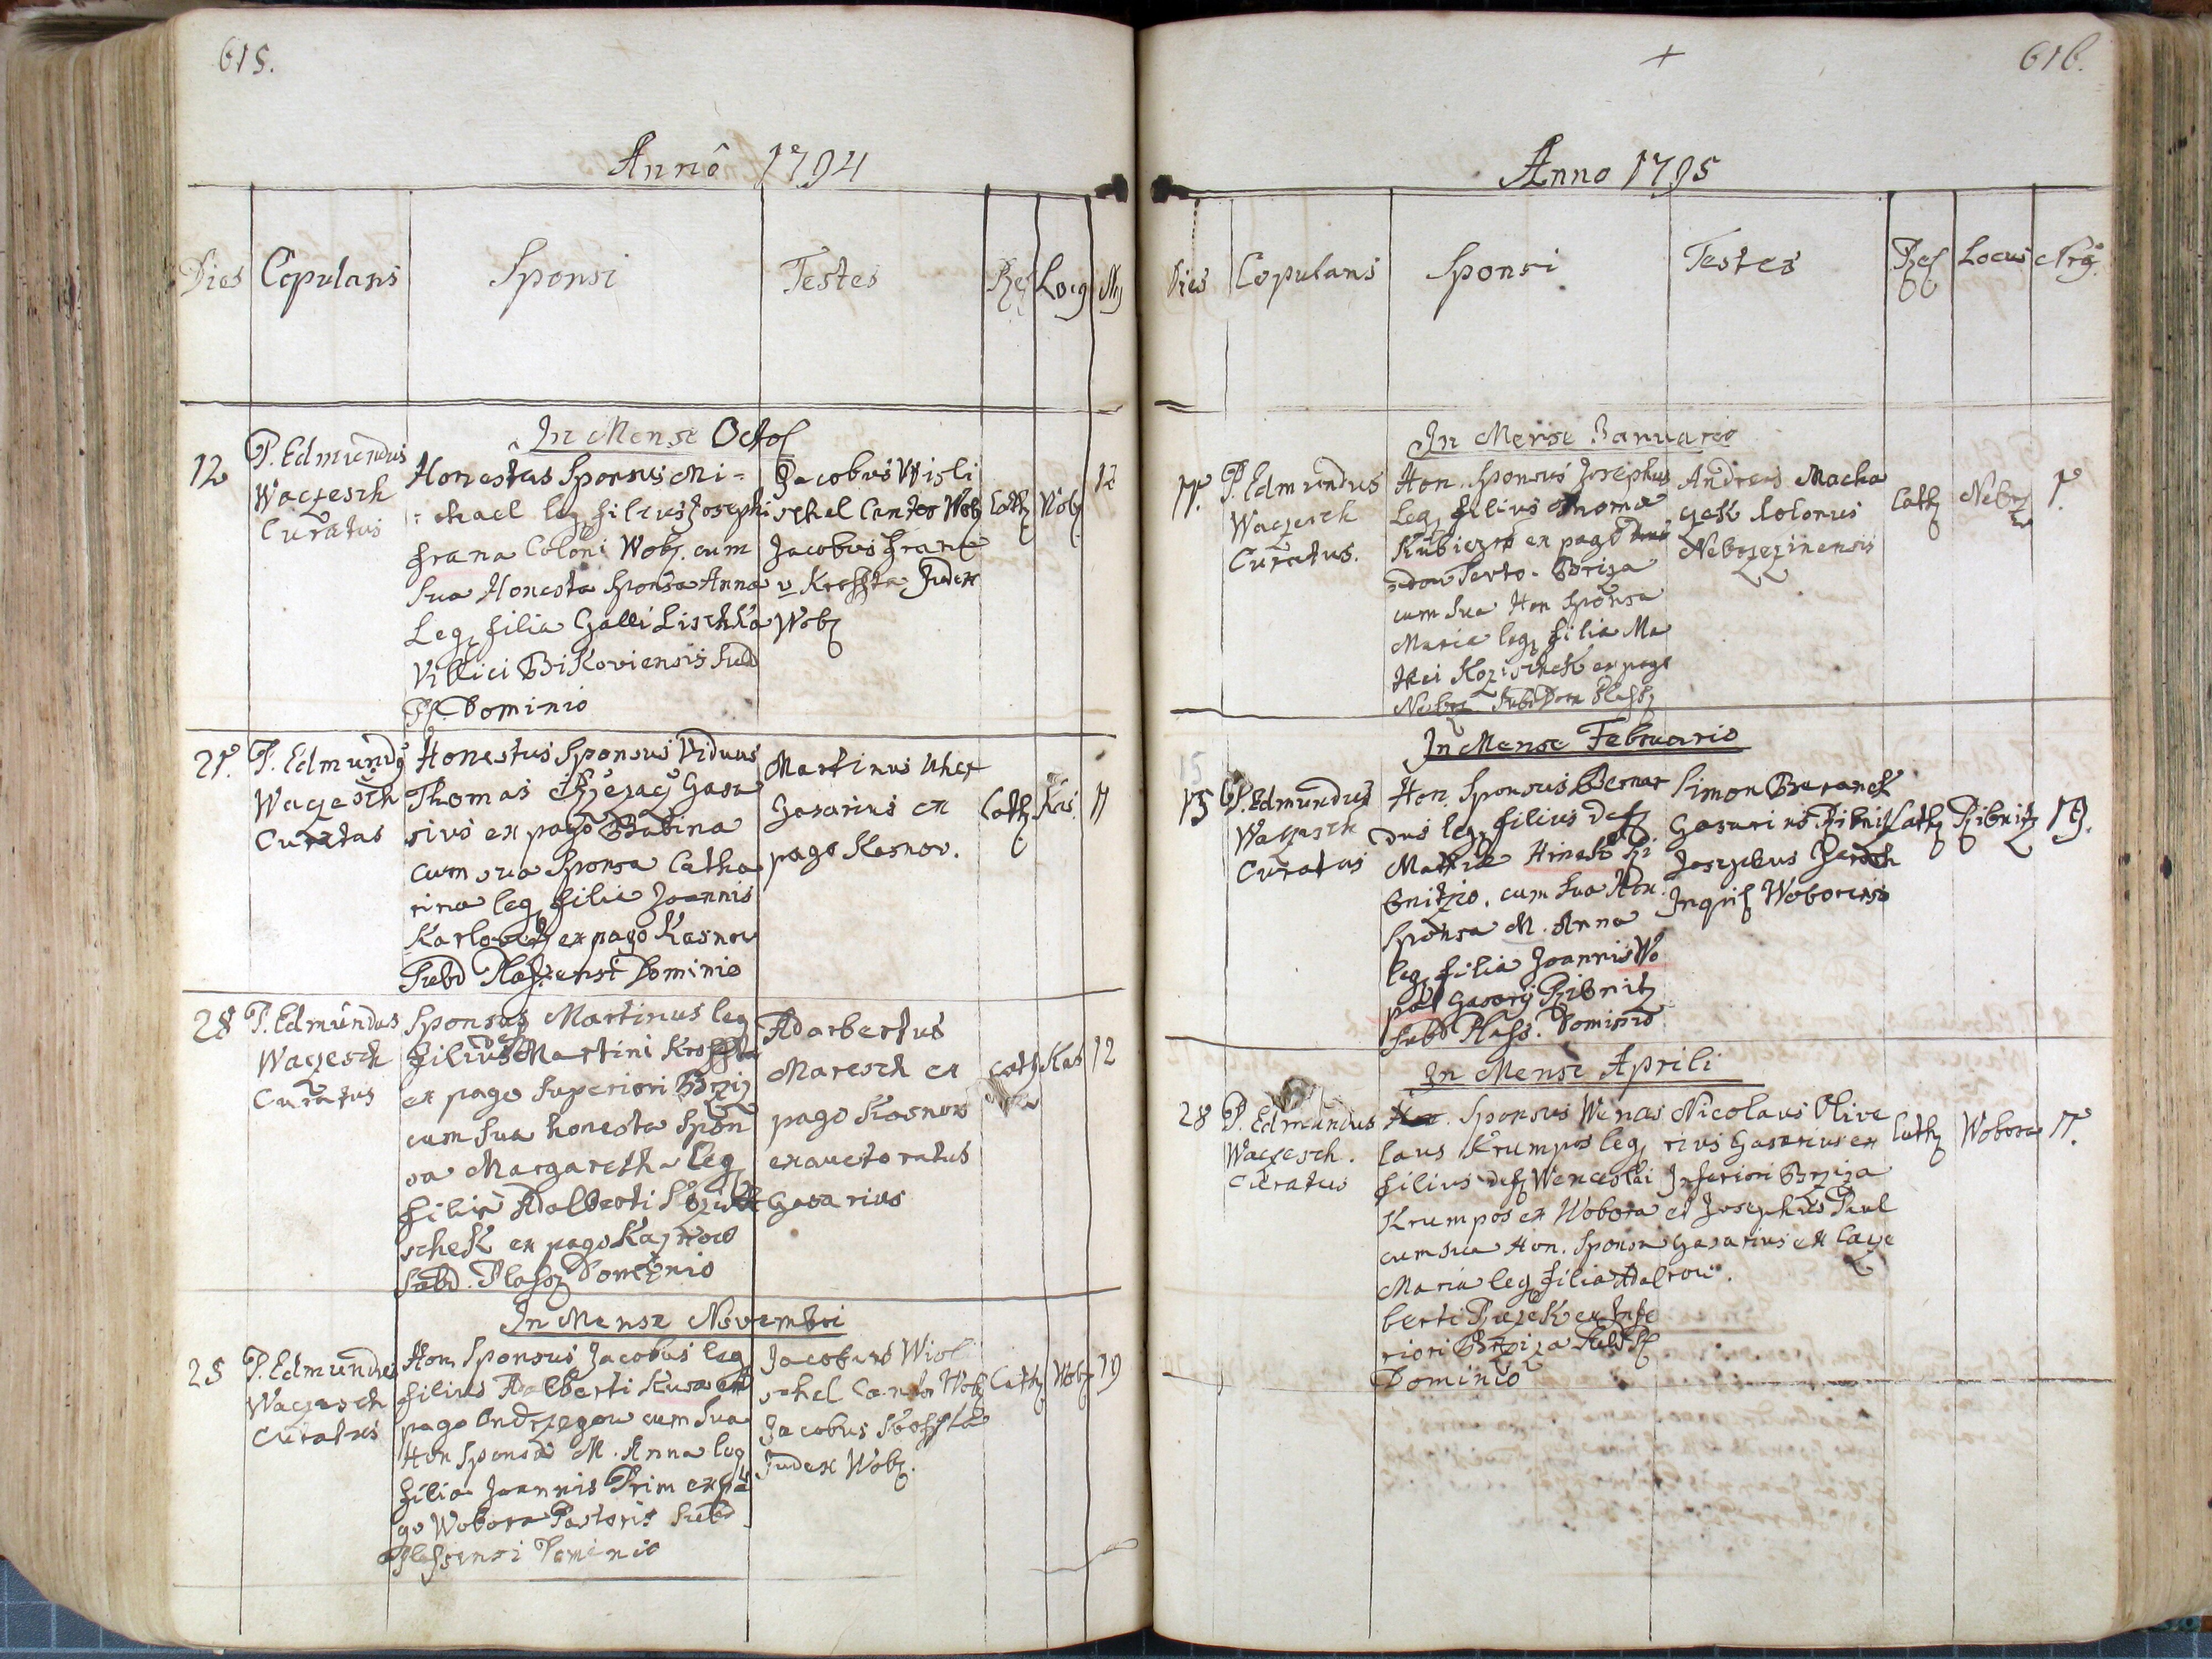 615.
Anno 1794
Dies Copulans Sponsi Testes Rel Locq Nrg
In Mense Octob
12
P. Edmundus
Waczesch
Curatus
Honestus Sponsus Mi=
=chael leg filius Josephi
Frana Coloni Wobz. cum
Sua Honesta Sponsa Anna
Leg filia Galli Lischka
Villici Bikoviensis Sub
Pl. Dominio
Jacobus Wisli
schel Cantor Wobz
Jacobus Frane
v Kreffta Judex
Wobz
Cath Wobz 12
21.
P. Edmundq
Waczesch
Curatus
Honestus Sponsus Viduus
Thomas Gasa
rius ex pago Babina
cum sua Sponsa Catha
rina leg filia Joannis
ex pago Kasnov
Subd Plass.ensi Dominio
Martinus Uher
Jasarius ex
pago Kasnov.
Cath Kas. 11
28
P. Edmundus
Waczesch
Curatus
Sponsus Martinus leg
filius def Martini Kreffta
ex pago Superiori Brziz
cum Sua honesta Spon
sa Margaretha leg
filia Adalberti
schek ex pago Kaznow
Subd. Plass Dominio
Adarbertus
Maresch ex
pago Kasnow
exauctoratus
Gasarius
Cath Kas 12
In Mense Novembri
25
P. Edmundus
Waczesch
Curatus
Hon Sponsus Jacobus leg
filius Adalberti Kusa ex
pago Ondrzegow cum Sua
Hon Sponsa M. Anna leg
filia Joannis Prim ex pa
go Wobora Pastoris Subd
Plassensi Dominio
Jacobus Wisli
schel Cantor Wobz
Jacobus Kreffta
Judex Wobz.
Cath Wobz 19
616.
Anno 1795
Dies Copulans Sponsi Testes Rel Locus Nrg.
In Mense Januario
11.
P. Edmundus
Waczesch
Curatus.
Hon. Sponsus Josephus
Leg filius Thoma
ex pago
cum Sua Hon Sponsa
Maria leg filia Ma
thei Kozischek ex pago
Nebrz Subd Dom Plass
Andreas Macha
czek Colonus
Nebrzezinensis
Cath Nebrz 1.
In Mense Februario
15
15
P. Edmundus
Waczesch
Curatus
Hon. Sponsus Bernar
dus leg filius def
Mathia Hinek Ri
bnitzio. cum Sua Hon.
Sponsa M. Anna
leg filia Joannis Wo
pat Gasarij Ribnitz
Subd Plass. Dominio
Simon Beranek
Gasarius Ribnitz
Josephus
Inquil Woborensis
Cath Ribnitz 19.
In Mense Aprili
28
P. Edmundus
Waczesch.
Curatus
Sponsus Wences
laus Krumpos leg
filius def Wenceslai
Krumpos ex Wobora
cum sua Hon. Sponsa
Maria leg filia Adal
berti ex Infe
riori Brziza Subd Pl
Dominio
Nicolaus Olive
rius Gasarius ex
Inferiori Brziza
et Josephus Paul
Gasarius ex Laze
row.
Cath Wobora 17.